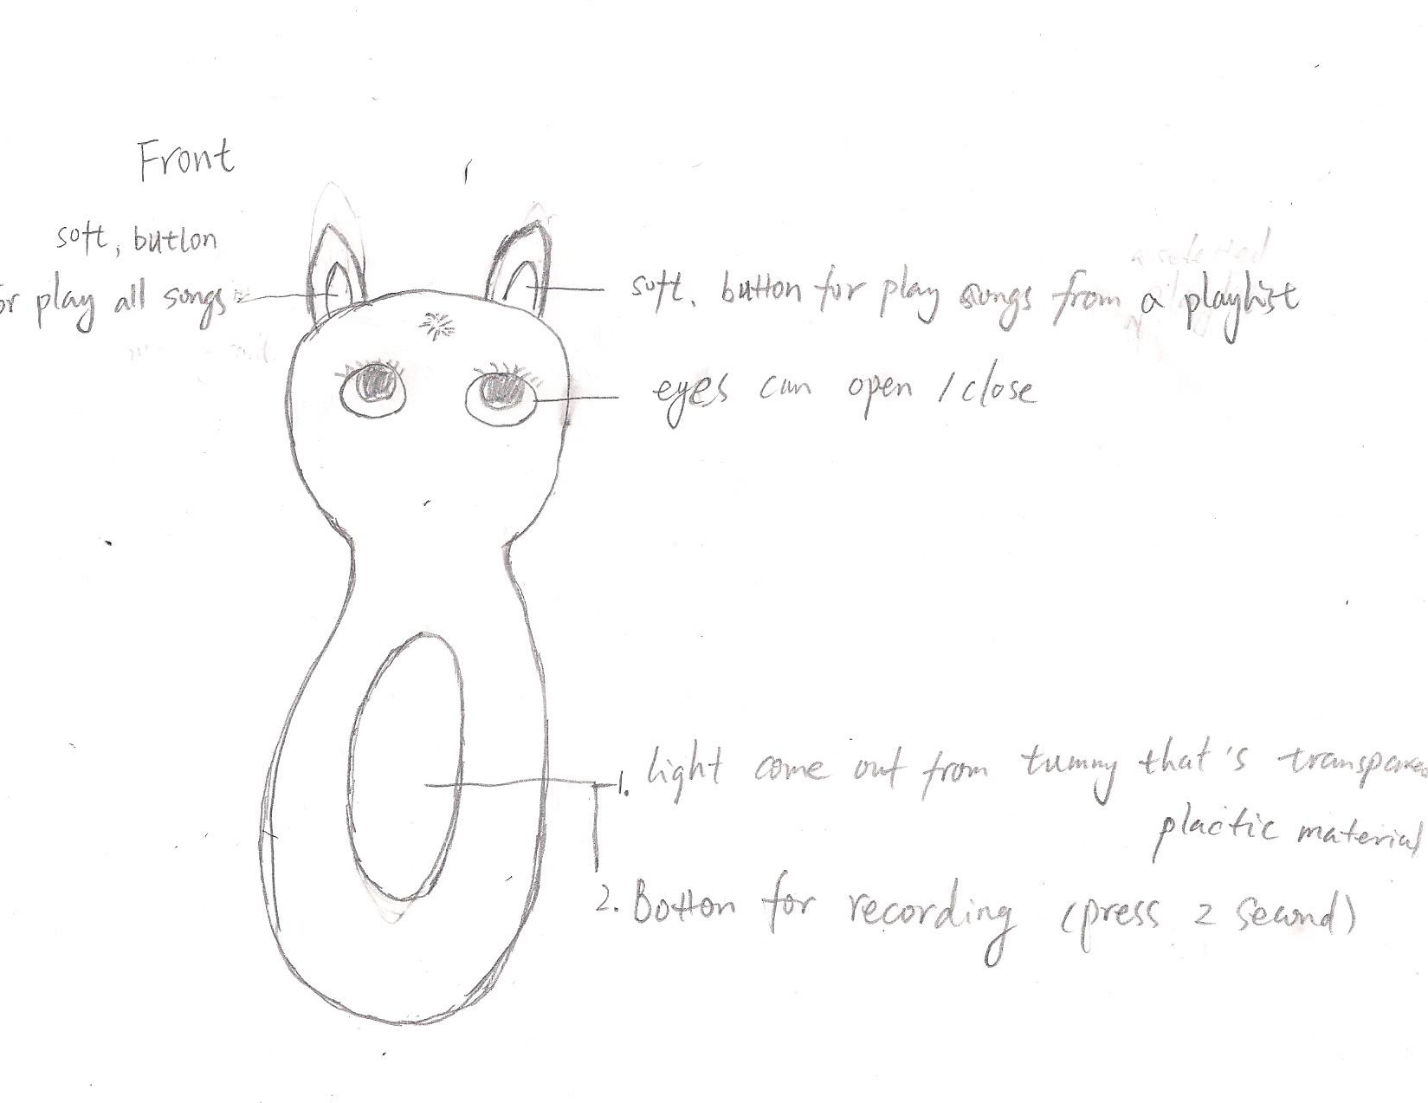 Front
soft, button
or play all songs
soft, button for play songs from a playlist
eyes can open / close
1. light come out from tummy that's transpare
plactic material
2. Botton for recording (press 2 second)